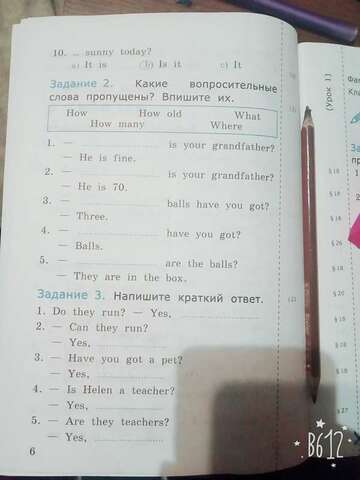 10. ... sunny today?
a) It is b) Is it c) It
Задание 2. Какие вопросительные
слова пропущены? Впишите их.
How How old What
How many Where
1. — is your grandfather?
— He is fine.
2. — is your grandfather?
— He is 70.
3. — balls have you got?
— Three.
4. — have you got?
— Balls.
5. — are the balls?
— They are in the box.
Задание 3. Напишите краткий ответ.
1. Do they run? — Yes,
2. — Can they run?
— Yes,
3. — Have you got a pet?
— Yes,
4. — Is Helen a teacher?
— Yes,
5. — Are they teachers?
— Yes,
6
(Урок 1)
§ 18
§ 18
§ 26
§ 20
§ 20
§ 20
§ 27
B612